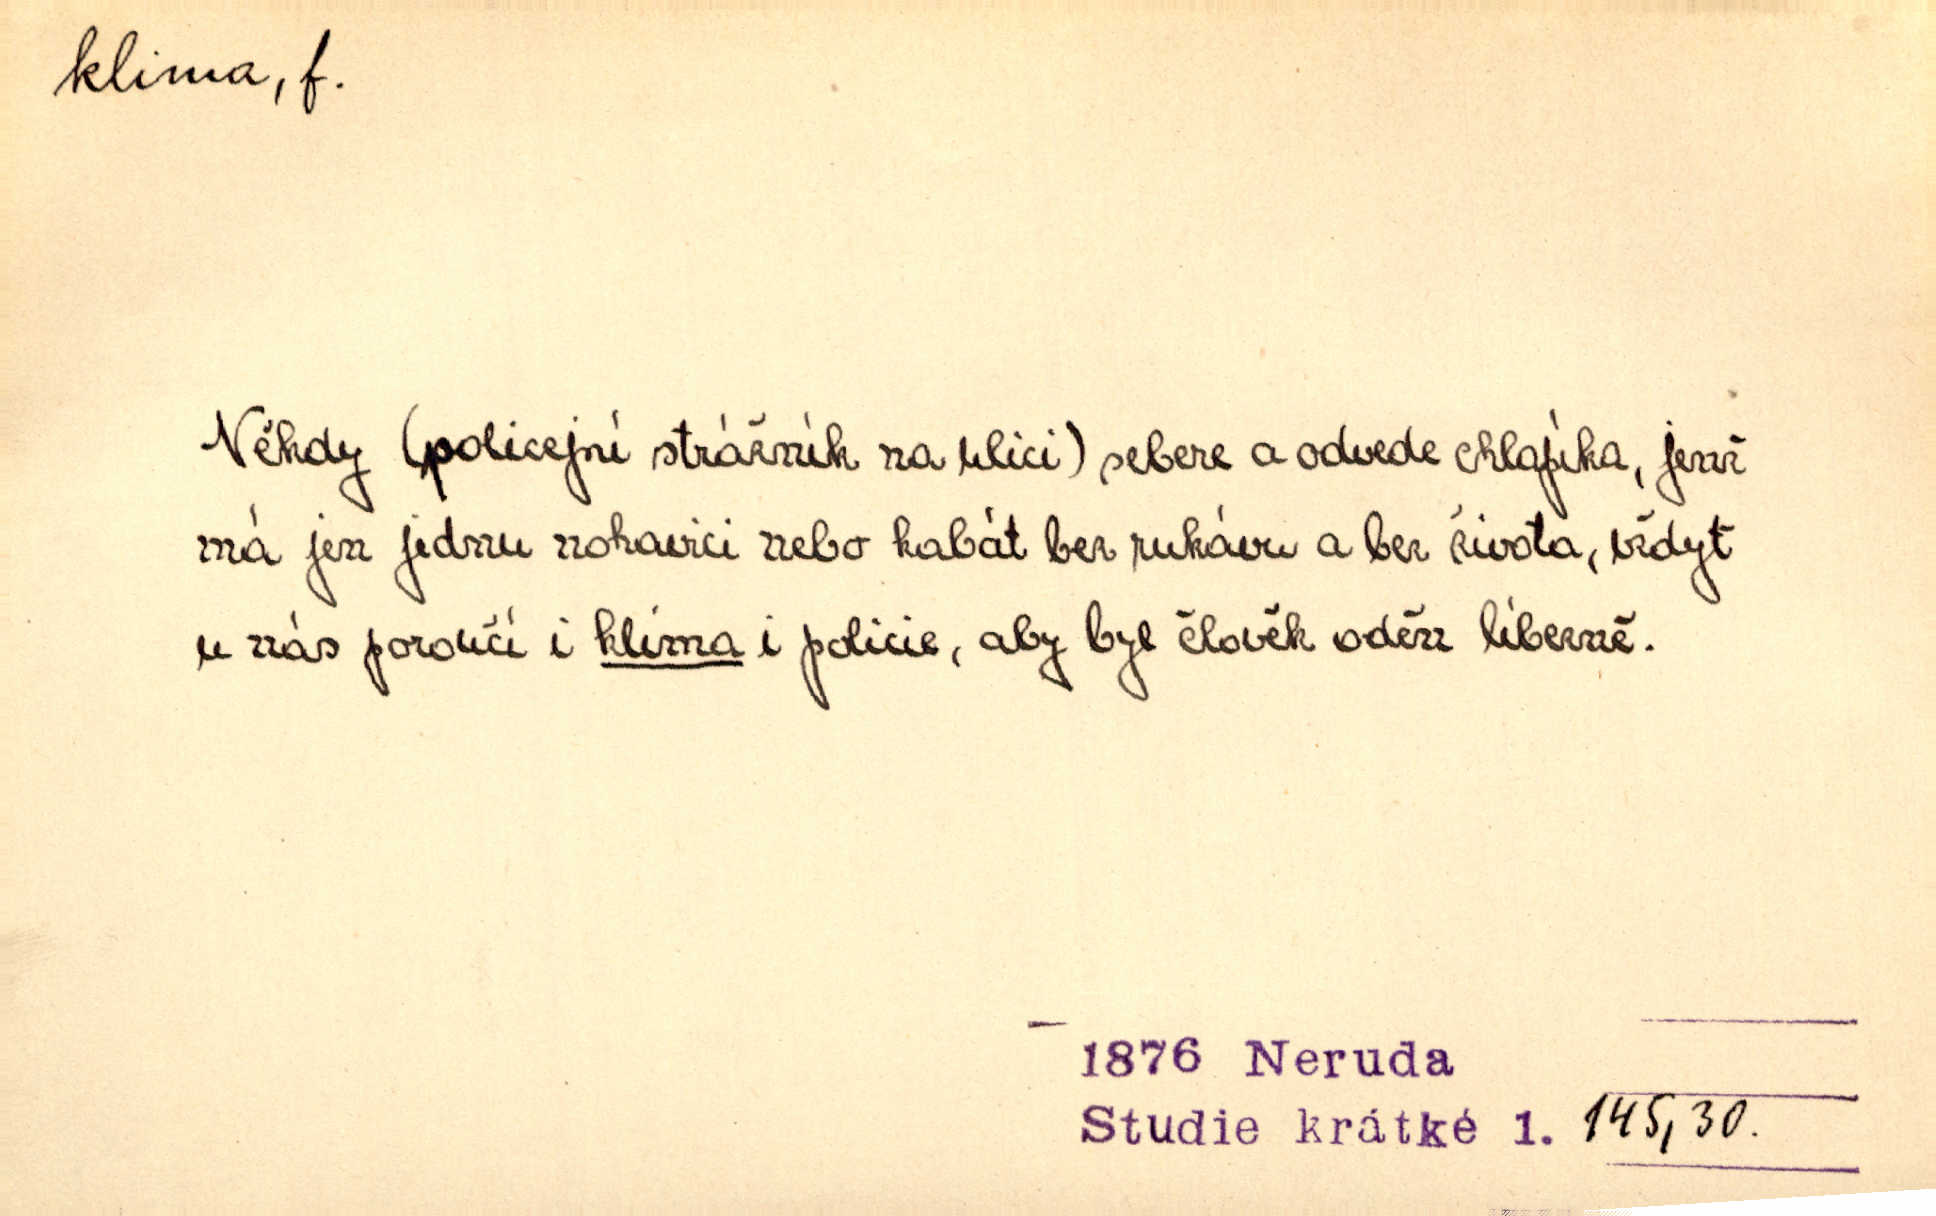 klima, f.
Někdy (policejní strážník na ulici) sebere a odvede chlapíka, jenž
má jen jednu nohavici nebo kabát bez rukávu a bez života, vždyť
u nás poroučí i klima i policie, aby byl člověk oděn liberně.
1876 Neruda
Studie krátké 1. 145,30.